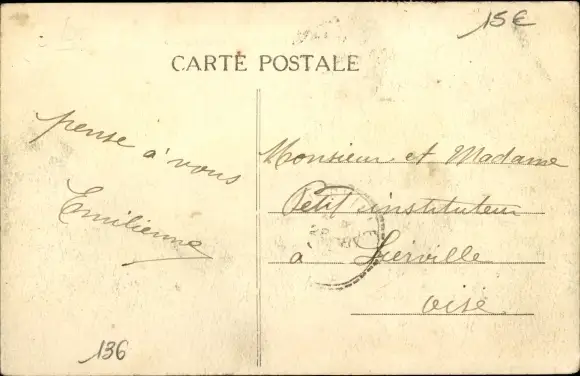 15€
CARTE POSTALE
pense à vous
Emilienne
Monsieur et Madame
Petit instituteur
à Lierville
Oise.
136